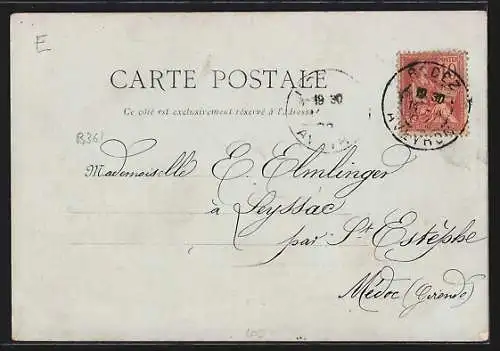 E
CARTE POSTALE
Ce côté est exclusivement réservé à l'adresse
RODEZ
19 30
AVEYRON
19 30
B361
Mademoiselle E. Elmlinger
à Leyssac
par St Estèphe
Médoc (Gironde)